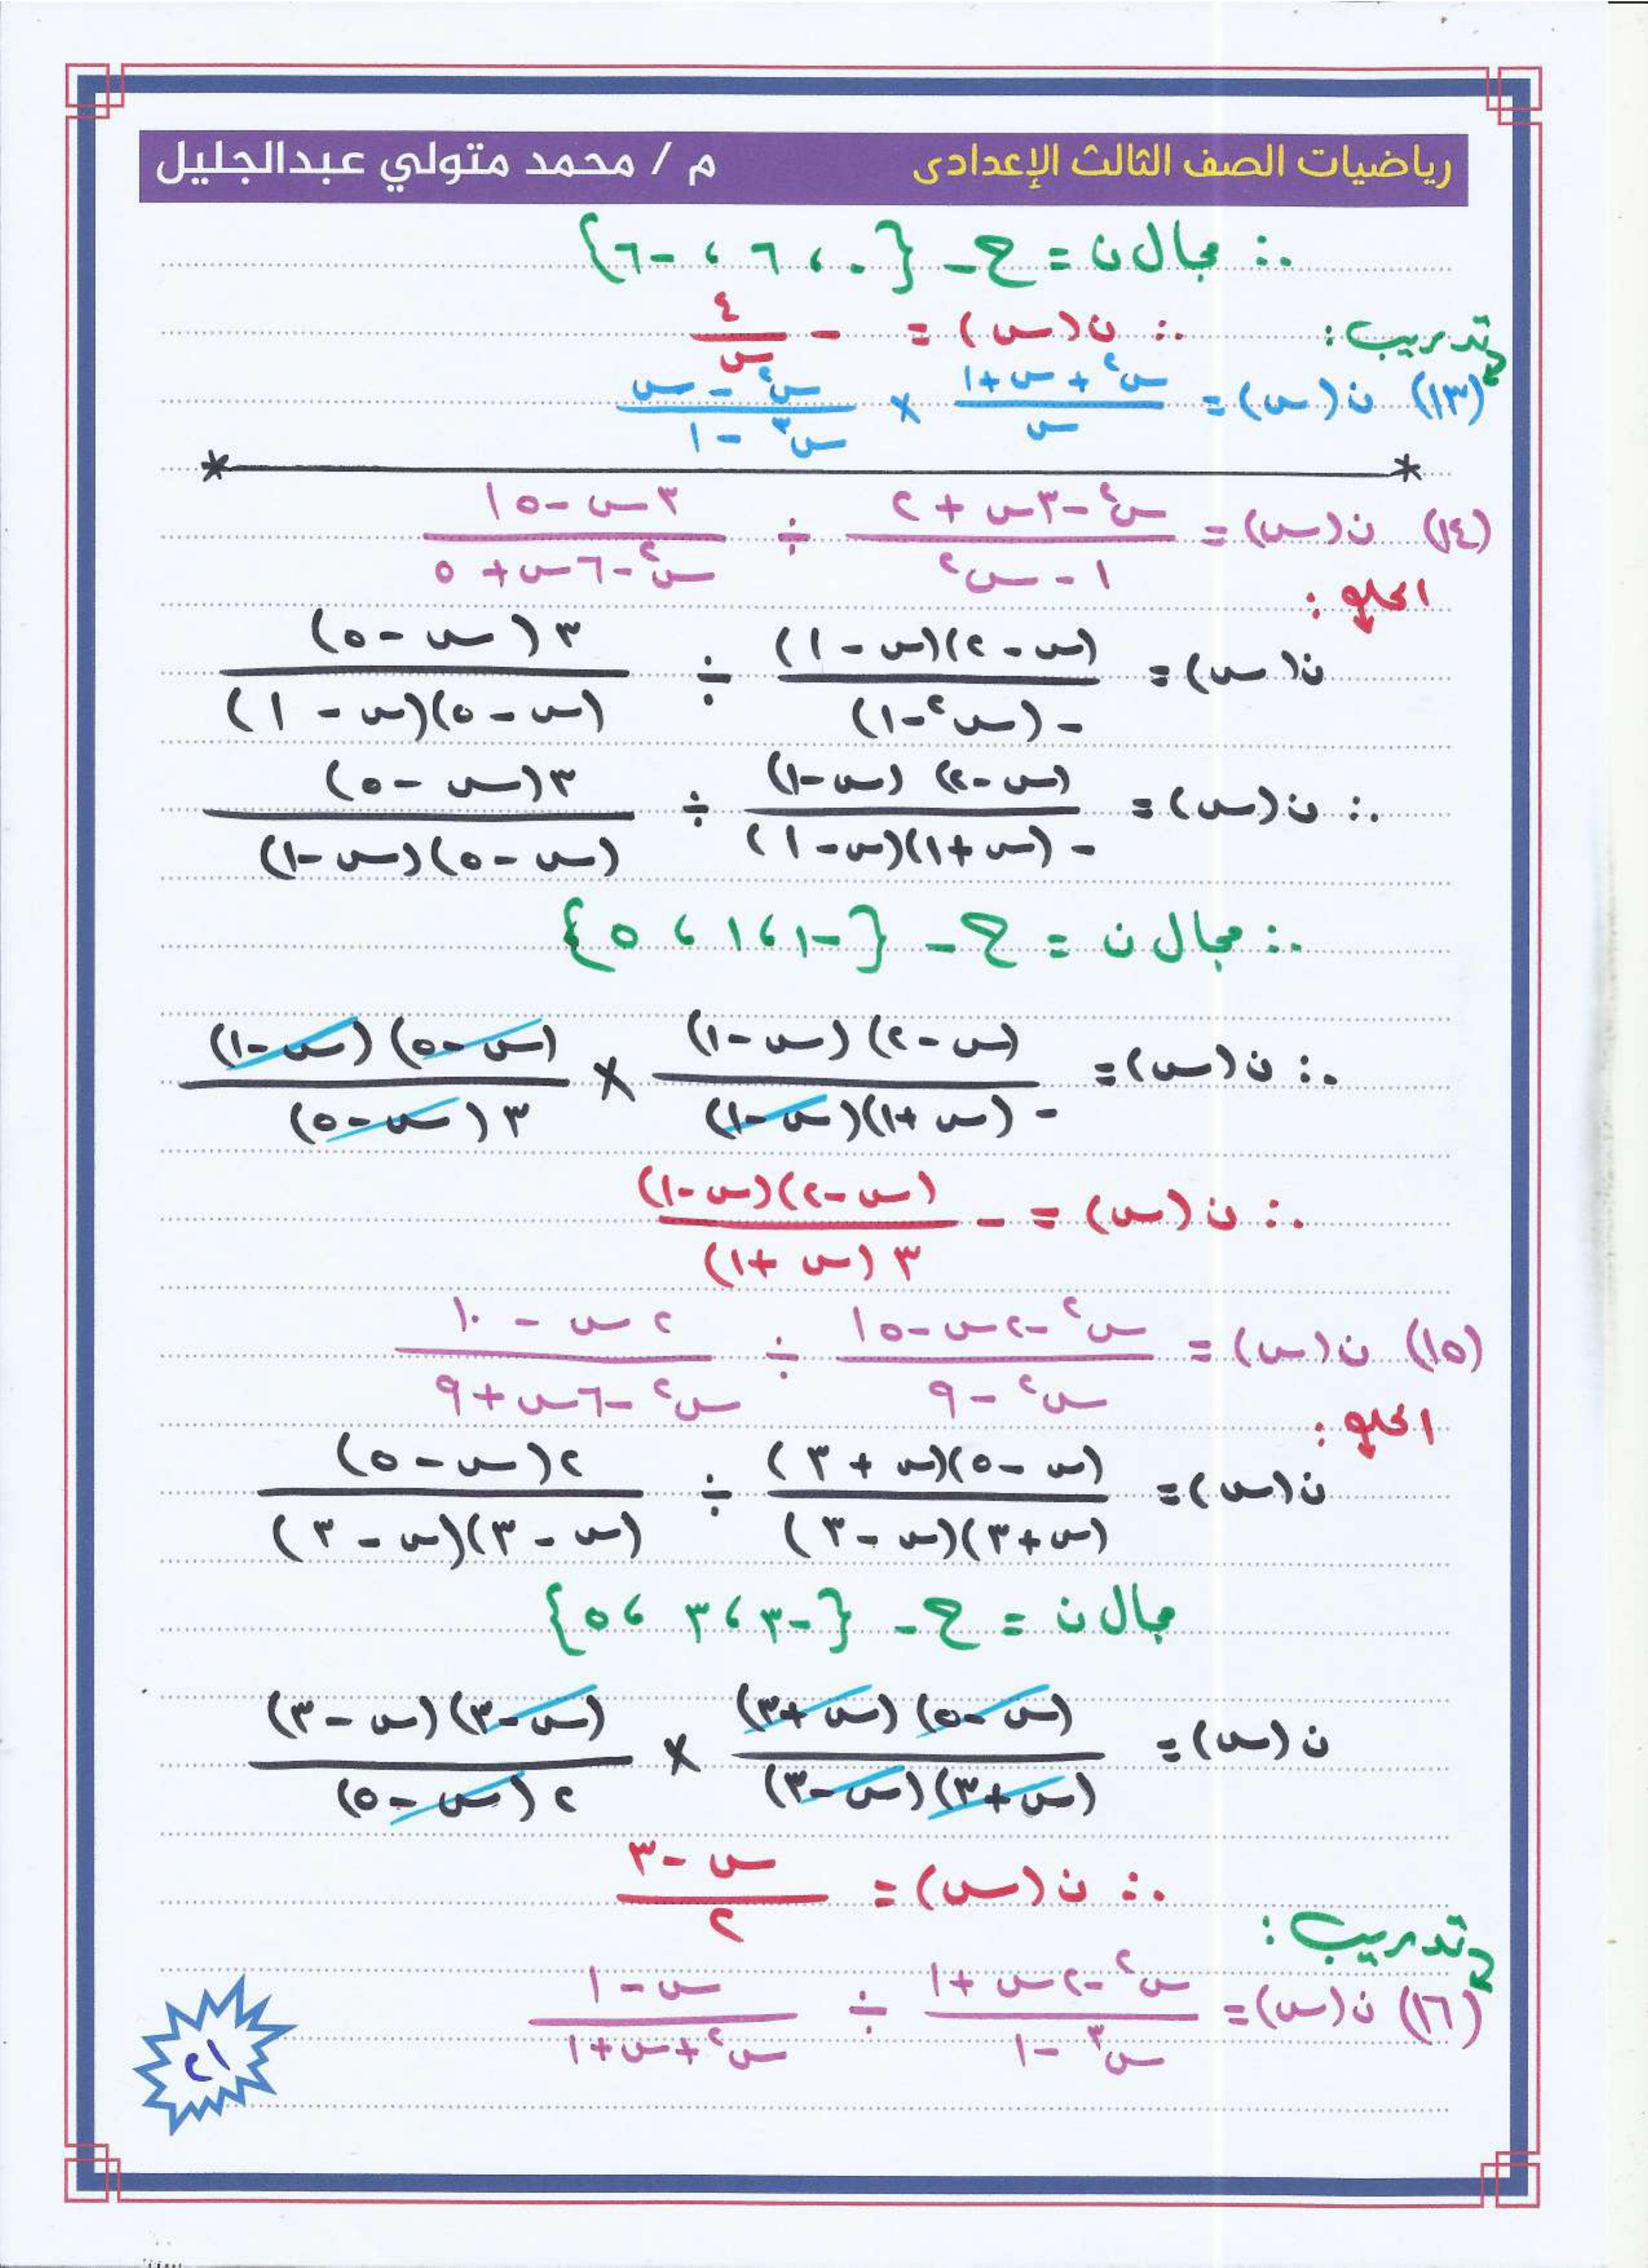 رياضيات الصف الثالث الإعدادى م / محمد متولي عبدالجليل
∴ مجال ن = ح - {٠ ، ٦ ، -٦}
تدريب : ∴ ن(س) = - ٤/س
(١٣) ن(س) = (س٢ + س + ١)/س × (س٢ - س)/(س٣ - ١)
(١٤) ن(س) = (س٢ - ٣س + ٢)/(١ - س٢) ÷ (٣س - ١٥)/(س٢ - ٦س + ٥)
الحلو :
ن(س) = (س - ٢)(س - ١)/-(س٢ - ١) ÷ ٣(س - ٥)/(س - ٥)(س - ١)
∴ ن(س) = (س - ٢)(س - ١)/-(س + ١)(س - ١) ÷ ٣(س - ٥)/(س - ٥)(س - ١)
∴ مجال ن = ح - {-١ ، ١ ، ٥}
∴ ن(س) = (س - ٢)(س - ١)/-(س + ١)(س - ١) × (س - ٥)(س - ١)/٣(س - ٥)
∴ ن(س) = - (س - ٢)(س - ١)/٣(س + ١)
(١٥) ن(س) = (س٢ - ٢س - ١٥)/(س٢ - ٩) ÷ (٢س - ١٠)/(س٢ - ٦س + ٩)
الحلو :
ن(س) = (س - ٥)(س + ٣)/(س + ٣)(س - ٣) ÷ ٢(س - ٥)/(س - ٣)(س - ٣)
مجال ن = ح - {-٣ ، ٣ ، ٥}
ن(س) = (س - ٥)(س + ٣)/(س + ٣)(س - ٣) × (س - ٣)(س - ٣)/٢(س - ٥)
∴ ن(س) = (س - ٣)/٢
تدريب :
(١٦) ن(س) = (س٢ - ٢س + ١)/(س٣ - ١) ÷ (س - ١)/(س٢ + س + ١)
٢١